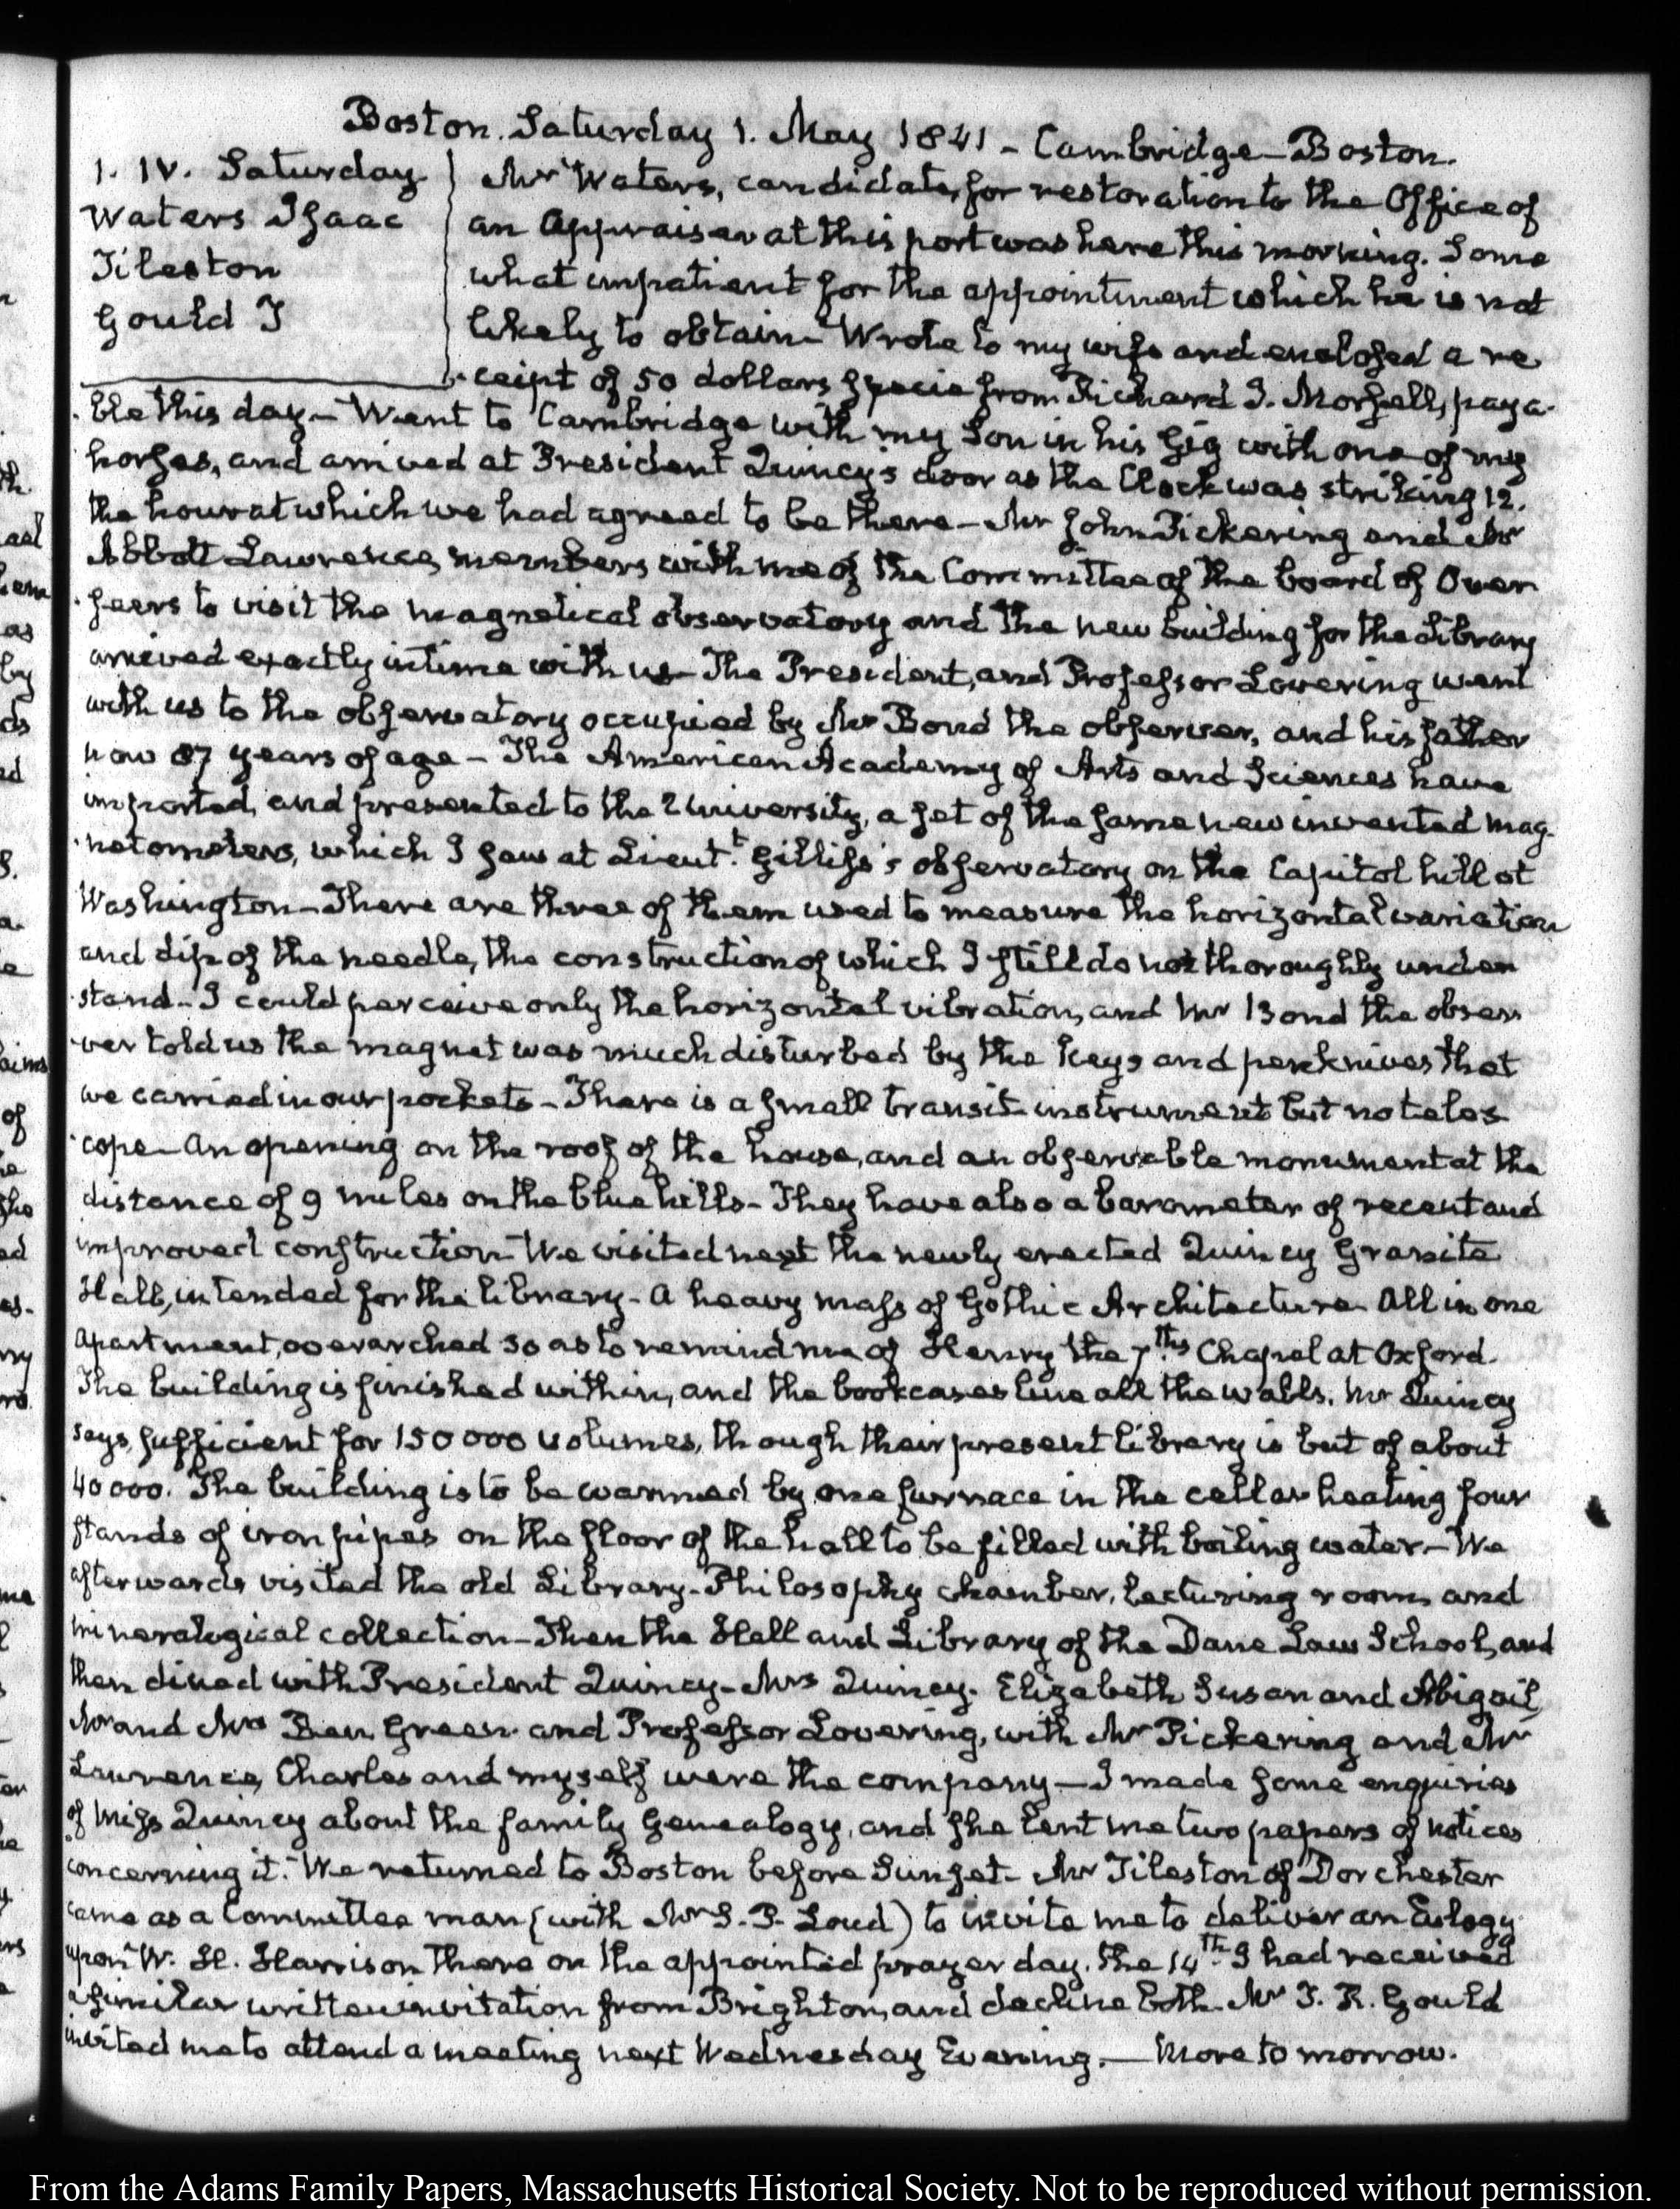 Boston. Saturday 1. May 1841 – Cambridge – Boston.
1. IV. Saturday
Waters Isaac
Tileston
Gould T
Mr Waters, candidate, for restoration to the Office of
an Appraiser at this port was here this morning. Some
what impatient for the appointment which he is not
likely to obtain – Wrote to my wife and enclosed a re
ceipt of 50 dollars specie from Richard J. Morsell, paya-
ble this day – Went to Cambridge with my Son in his Gig with one of my
horses, and arrived at President Quincy's door as the Clock was striking 12.
the hour at which we had agreed to be there – Mr John Pickering and Mr
Abbott Lawrence, members with me of the Committee of the board of Over
seers to visit the magnetical observatory and the new building for the Library
arrived exactly in time with us – The President, and Professor Lovering went
with us to the observatory occupied by Mr Bond the observer, and his father
now 87 years of age – The American Academy of Arts and Sciences have
imported, and presented to the University, a set of the same new invented mag-
netometers, which I saw at Lieut.t Gilliss's observatory on the Capitol hill at
Washington – There are three of them used to measure the horizontal variation
and dip of the needle, the construction of which I still do not thoroughly under
stand – I could perceive only the horizontal vibration, and Mr Bond the obser
ver told us the magnet was much disturbed by the keys and penknives that
we carried in our pockets – There is a small transit instrument but no teles
cope – An opening on the roof of the house, and an observable monument at the
distance of 9 miles on the blue hills – They have also a barometer of recent and
improved construction – We visited next the newly erected Quincy Granite
Hall, intended for the library – A heavy mass of Gothic Architecture – All in one
apartment, overarched so as to remind me of Henry the 7.ths Chapel at Oxford.
The building is finished within, and the bookcases line all the walls. Mr Quincy
says, sufficient for 150000 volumes, though their present library is but of about
40000. The building is to be warmed by one furnace in the cellar heating four
stands of iron pipes on the floor of the hall to be filled with boiling water – We
afterwards visited the old Library – Philosophy chamber, lecturing room, and
mineralogical collection – Then the Hall and Library of the Dane Law School, and
then dined with President Quincy – Mrs Quincy. Elizabeth Susan and Abigail,
Mr and Mrs Ben. Green and Professor Lovering, with Mr Pickering and Mr
Lawrence, Charles and myself were the company – I made some enquiries
of Miss Quincy about the family Genealogy, and she lent me two papers of notices
concerning it. We returned to Boston before Sunset – Mr Tileston of Dorchester
came as a Committee man (with Mr S. P. Loud) to invite me to deliver an Eulogy
upon W. H. Harrison there on the appointed prayer day, the 14th. I had received
a similar written invitation from Brighton, and decline both. Mr T. R. Gould
invited me to attend a meeting next Wednesday Evening. — More to morrow.
From the Adams Family Papers, Massachusetts Historical Society. Not to be reproduced without permission.